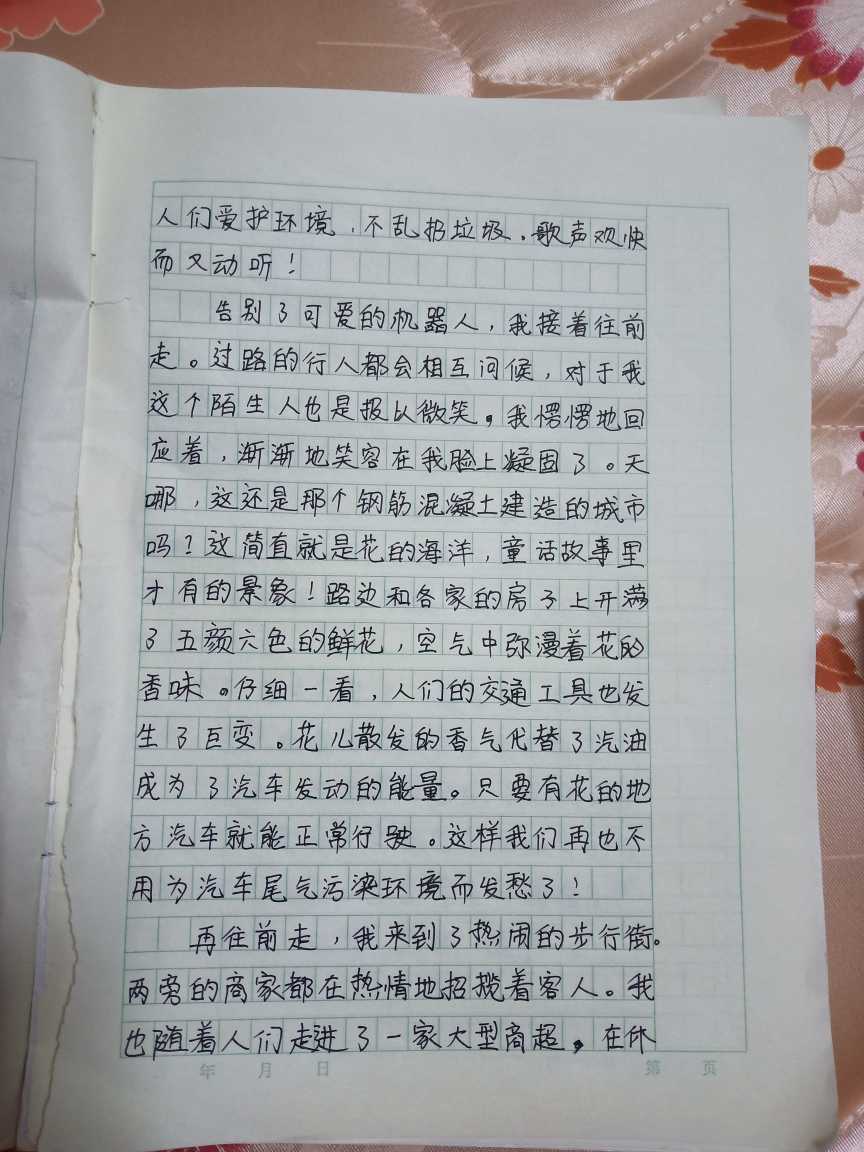 人们爱护环境，不乱扔垃圾，歌声欢快
而又动听！
告别了可爱的机器人，我接着往前
走。过路的行人都会相互问候，对于我
这个陌生人也是报以微笑，我愣愣地回
应着，渐渐地笑容在我脸上凝固了。天
哪，这还是那个钢筋混凝土建造的城市
吗？这简直就是花的海洋，童话故事里
才有的景象！路边和各家的房子上开满
了五颜六色的鲜花，空气中弥漫着花的
香味。仔细一看，人们的交通工具也发
生了巨变。花儿散发的香气代替了汽油
成为了汽车发动的能量。只要有花的地
方汽车就能正常行驶。这样我们再也不
用为汽车尾气污染环境而发愁了！
再往前走，我来到了热闹的步行街。
两旁的商家都在热情地招揽着客人。我
也随着人们走进了一家大型商超，在休
年 月 日 第 页